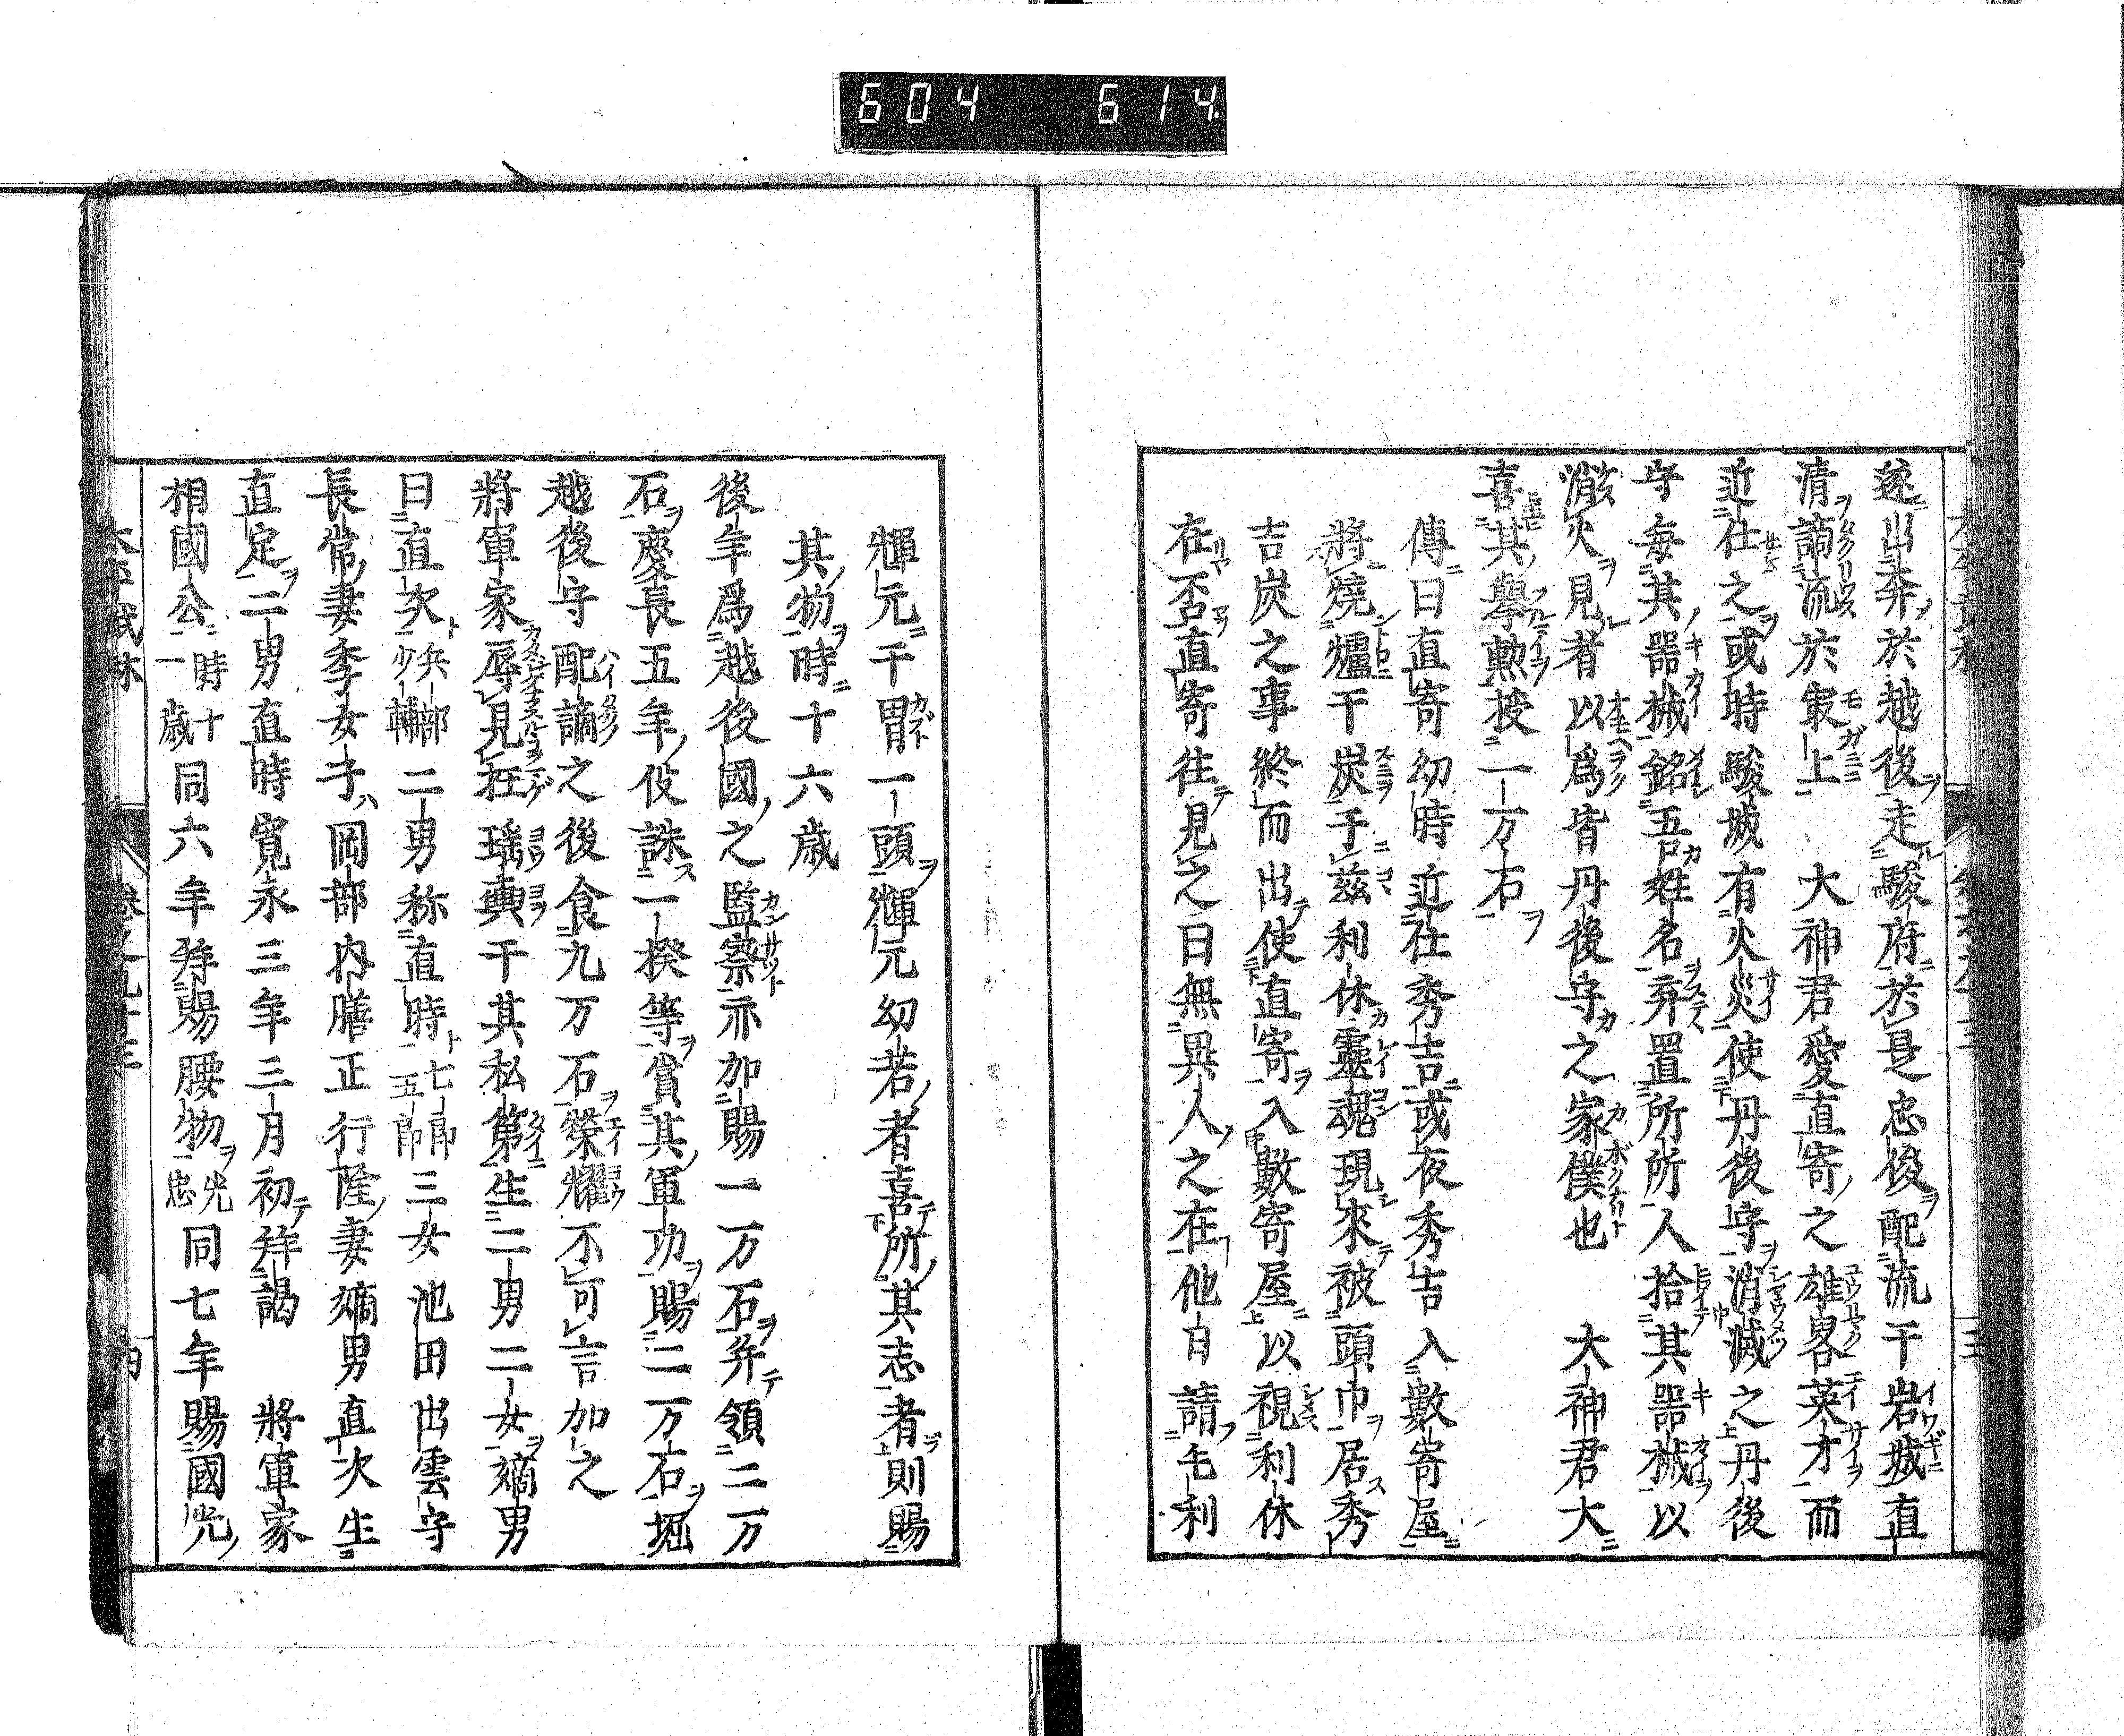 604 614
遂出奔於越後走駿府於是忠俊配流干岩城直
清謫流於㝡上 大神君愛直寄之雄畧英才而
近仕之或時駿城有火災使丹後守消滅之丹後
守每其噐械銘吾姓名弃置所所人拾其噐械以
消火見者以爲皆丹後守之家僕也 大神君大
喜其擧勲授一万石
傳曰直寄幼時近仕秀吉或夜秀吉入數寄屋
將燒爐干炭于兹利休靈魂現來被頭巾居秀
吉炭之事終而出使直寄入數寄屋以視利休
在否直寄往見之曰無異人之在他日請毛利
輝元干冑一頭輝元幼若者喜所其志者則賜
其物時十六歲
後年爲越後國之監察亦加賜一万石并領二万
石慶長五年伐誅一揆等賞其軍功賜二万石堀
越後守配謫之後食九万石榮耀不可言加之
將軍家辱見枉瑶輿干其私第生二男二女嫡男
曰直次兵部少輔二男称直時七郎五郎三女池田出雲守
長常妻季女子岡部内膳正行隆妻嫡男直次生
直定二男直時寬永三年三月初拜謁 將軍家
相國公時十一歲同六年拜賜腰物光忠同七年賜國光